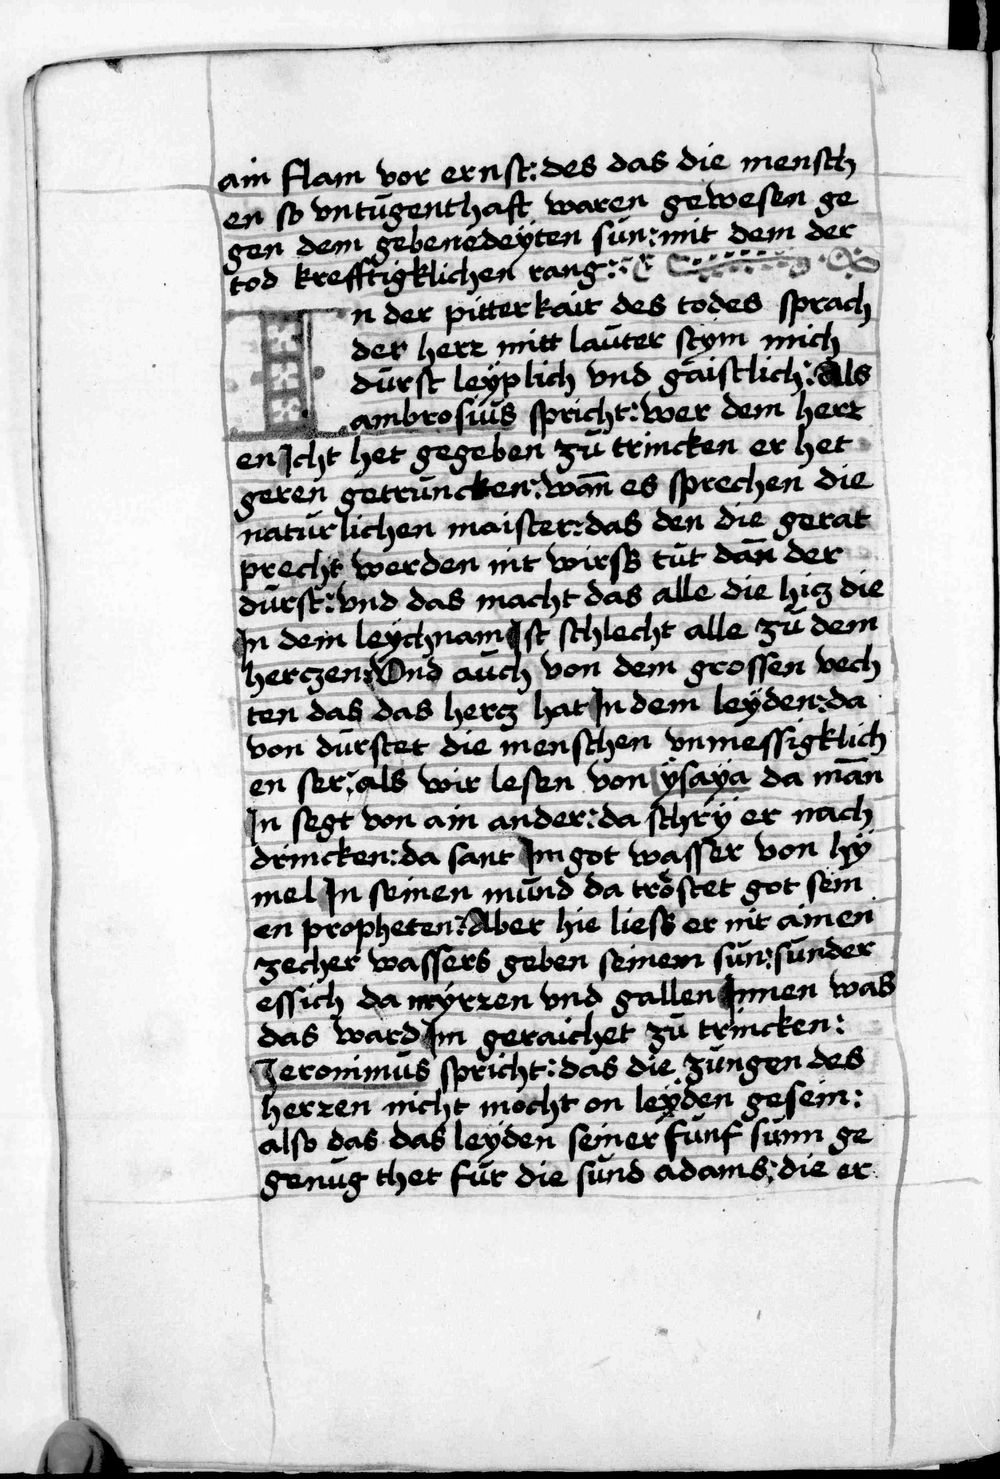 ain flam vor ernst: des das die mensch
en so vntúgenthaft waren gewesen ge
gen dem gebenedeÿten sún: mit dem der
tod krefftigklichen rang:
In der pitterkait des todes sprach
der herr mitt laúter stym mich
dúrst leÿplich vnd gaistlich: Als
ambrosiús spricht: wer dem herr
en Icht het gegeben zú trincken er het
geren getrúncken: wan̄ es sprechen die
natúrlichen maister: das den die gerat
precht werden nit wirsß tút dan̄ der
dúrst: vnd das macht das alle die hicz die
In dem leÿchnam Ist schlecht alle zú dem
herczen: Vnd aúch von dem grossen vech
ten das das hercz hat In dem leÿden: da
von dúrstet die menschen vnmessigklich
en ser: als wir lesen von ÿsaÿa da man̄
In segt von ain ander: da schrÿ er nach
drincken: da sant Im got wasser von hÿ
mel In seinen múnd da tröstet got sein
en propheten: Aber hie liesß er nit ainen
zecher wassers geben seinem sún: súnder
essich da mÿrren vnd gallen Innen was
das ward Im geraichet zú trincken:
Jeronimús spricht: das die zúngen des
herren nicht mocht on leÿden gesein:
also das das leÿden seiner fúnf súnn ge
genúg thet fúr die súnd adams: die er